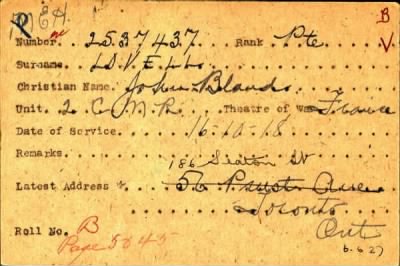 B
Number. 2537437. Rank Pte V
Surname LOVELL
Christian Name. John
Unit. 2 C.M.R. Theatre of War France
Date of Service. 16-10-18
Remarks
186 Seaton St
Latest Address 56 Ave
Toronto
Ont
Roll No. B
Page 5045
6.6.27